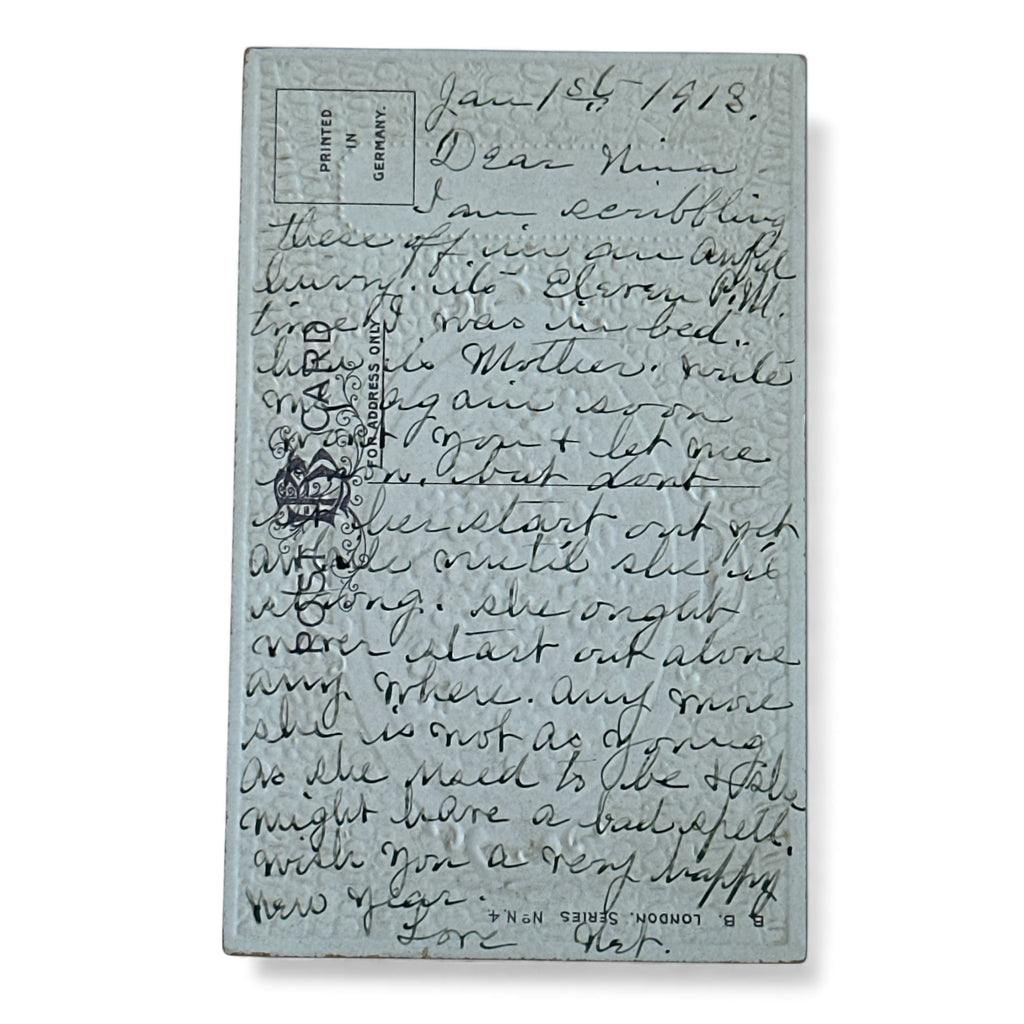 PRINTED
IN
GERMANY.
Jan 1st 1913.
Dear Nina
I am scribbling
these off in an awful
hurry. its Eleven P.M.
time I was in bed.
how is Mother. write
me again soon
wont you & let me
know. but dont
let her start out yet
awhile until she is
strong. she ought
never start out alone
any where. any more
she is not as young
as she used to be & she
might have a bad spell.
wish you a very happy
New Year.
Love Net.
POST CARD
FOR ADDRESS ONLY
B. B. LONDON. SERIES No N.4